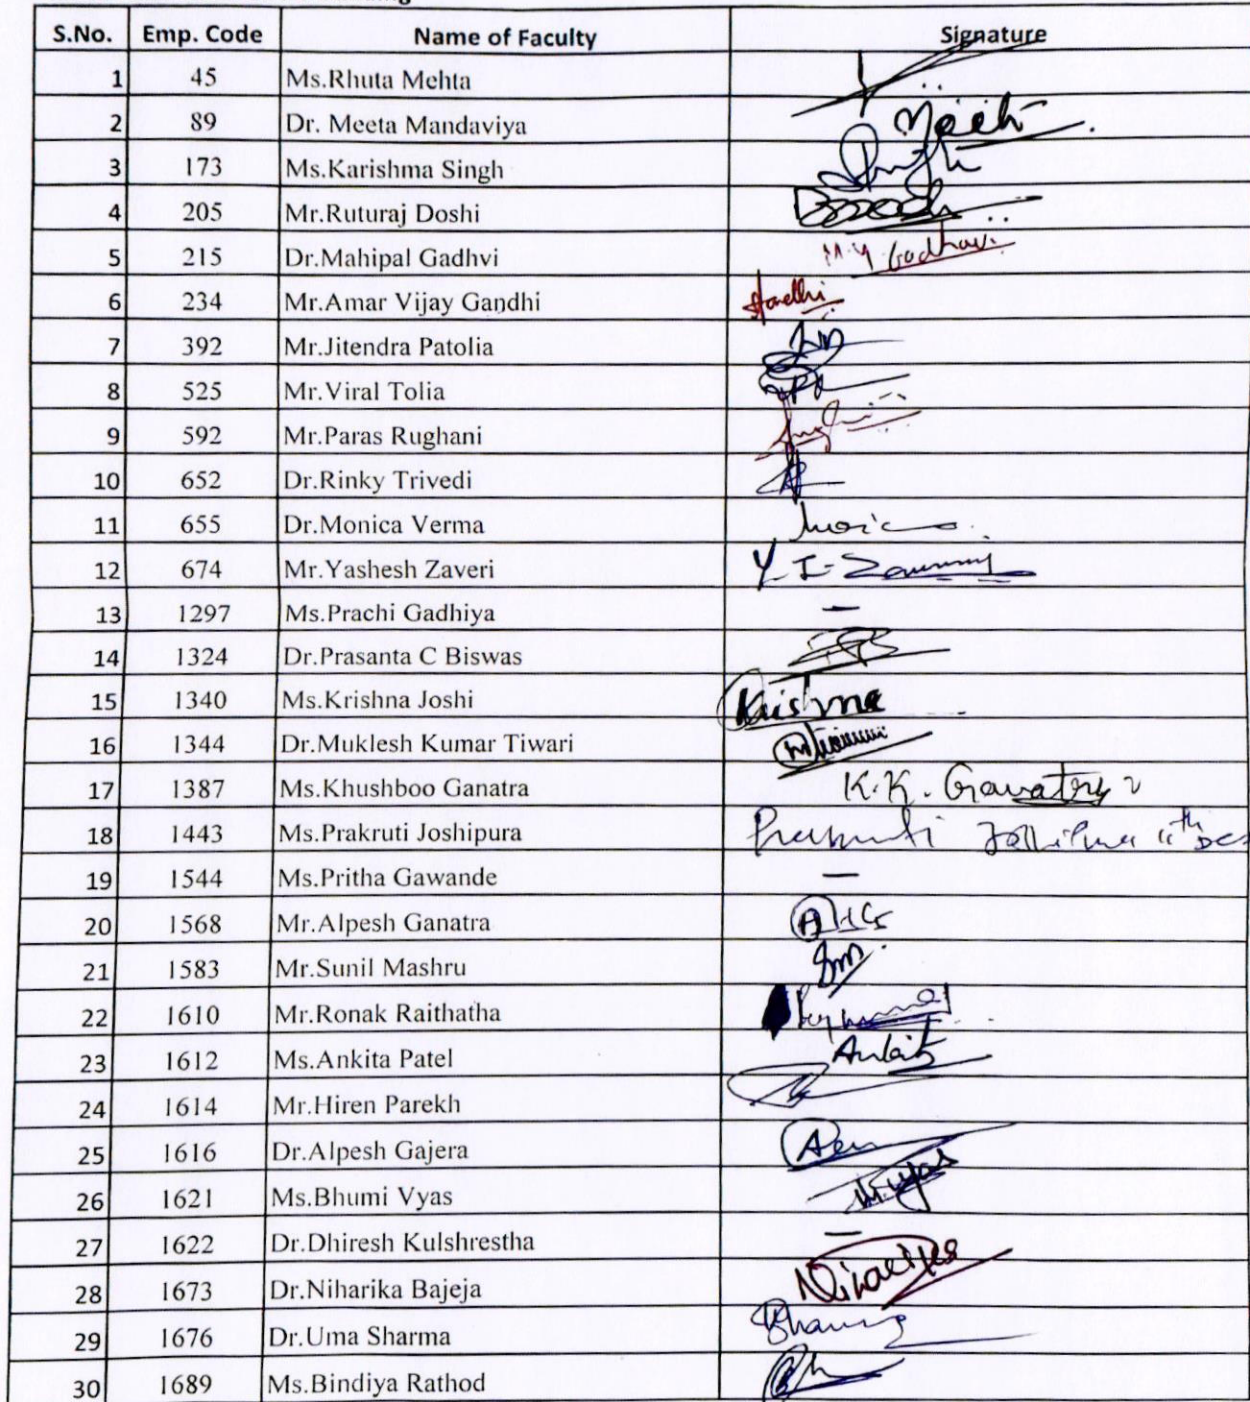 S.No. Emp. Code Name of Faculty Signature
1 45 Ms.Rhuta Mehta
2 89 Dr. Meeta Mandaviya
3 173 Ms.Karishma Singh
4 205 Mr.Ruturaj Doshi
5 215 Dr.Mahipal Gadhvi M.Y. Gadhavi
6 234 Mr.Amar Vijay Gandhi
7 392 Mr.Jitendra Patolia
8 525 Mr.Viral Tolia
9 592 Mr.Paras Rughani
10 652 Dr.Rinky Trivedi
11 655 Dr.Monica Verma
12 674 Mr.Yashesh Zaveri
13 1297 Ms.Prachi Gadhiya —
14 1324 Dr.Prasanta C Biswas
15 1340 Ms.Krishna Joshi Krishna
16 1344 Dr.Muklesh Kumar Tiwari
17 1387 Ms.Khushboo Ganatra K.K.
18 1443 Ms.Prakruti Joshipura Prakruti
19 1544 Ms.Pritha Gawande —
20 1568 Mr.Alpesh Ganatra
21 1583 Mr.Sunil Mashru Sm
22 1610 Mr.Ronak Raithatha
23 1612 Ms.Ankita Patel
24 1614 Mr.Hiren Parekh
25 1616 Dr.Alpesh Gajera
26 1621 Ms.Bhumi Vyas
27 1622 Dr.Dhiresh Kulshrestha —
28 1673 Dr.Niharika Bajeja
29 1676 Dr.Uma Sharma
30 1689 Ms.Bindiya Rathod